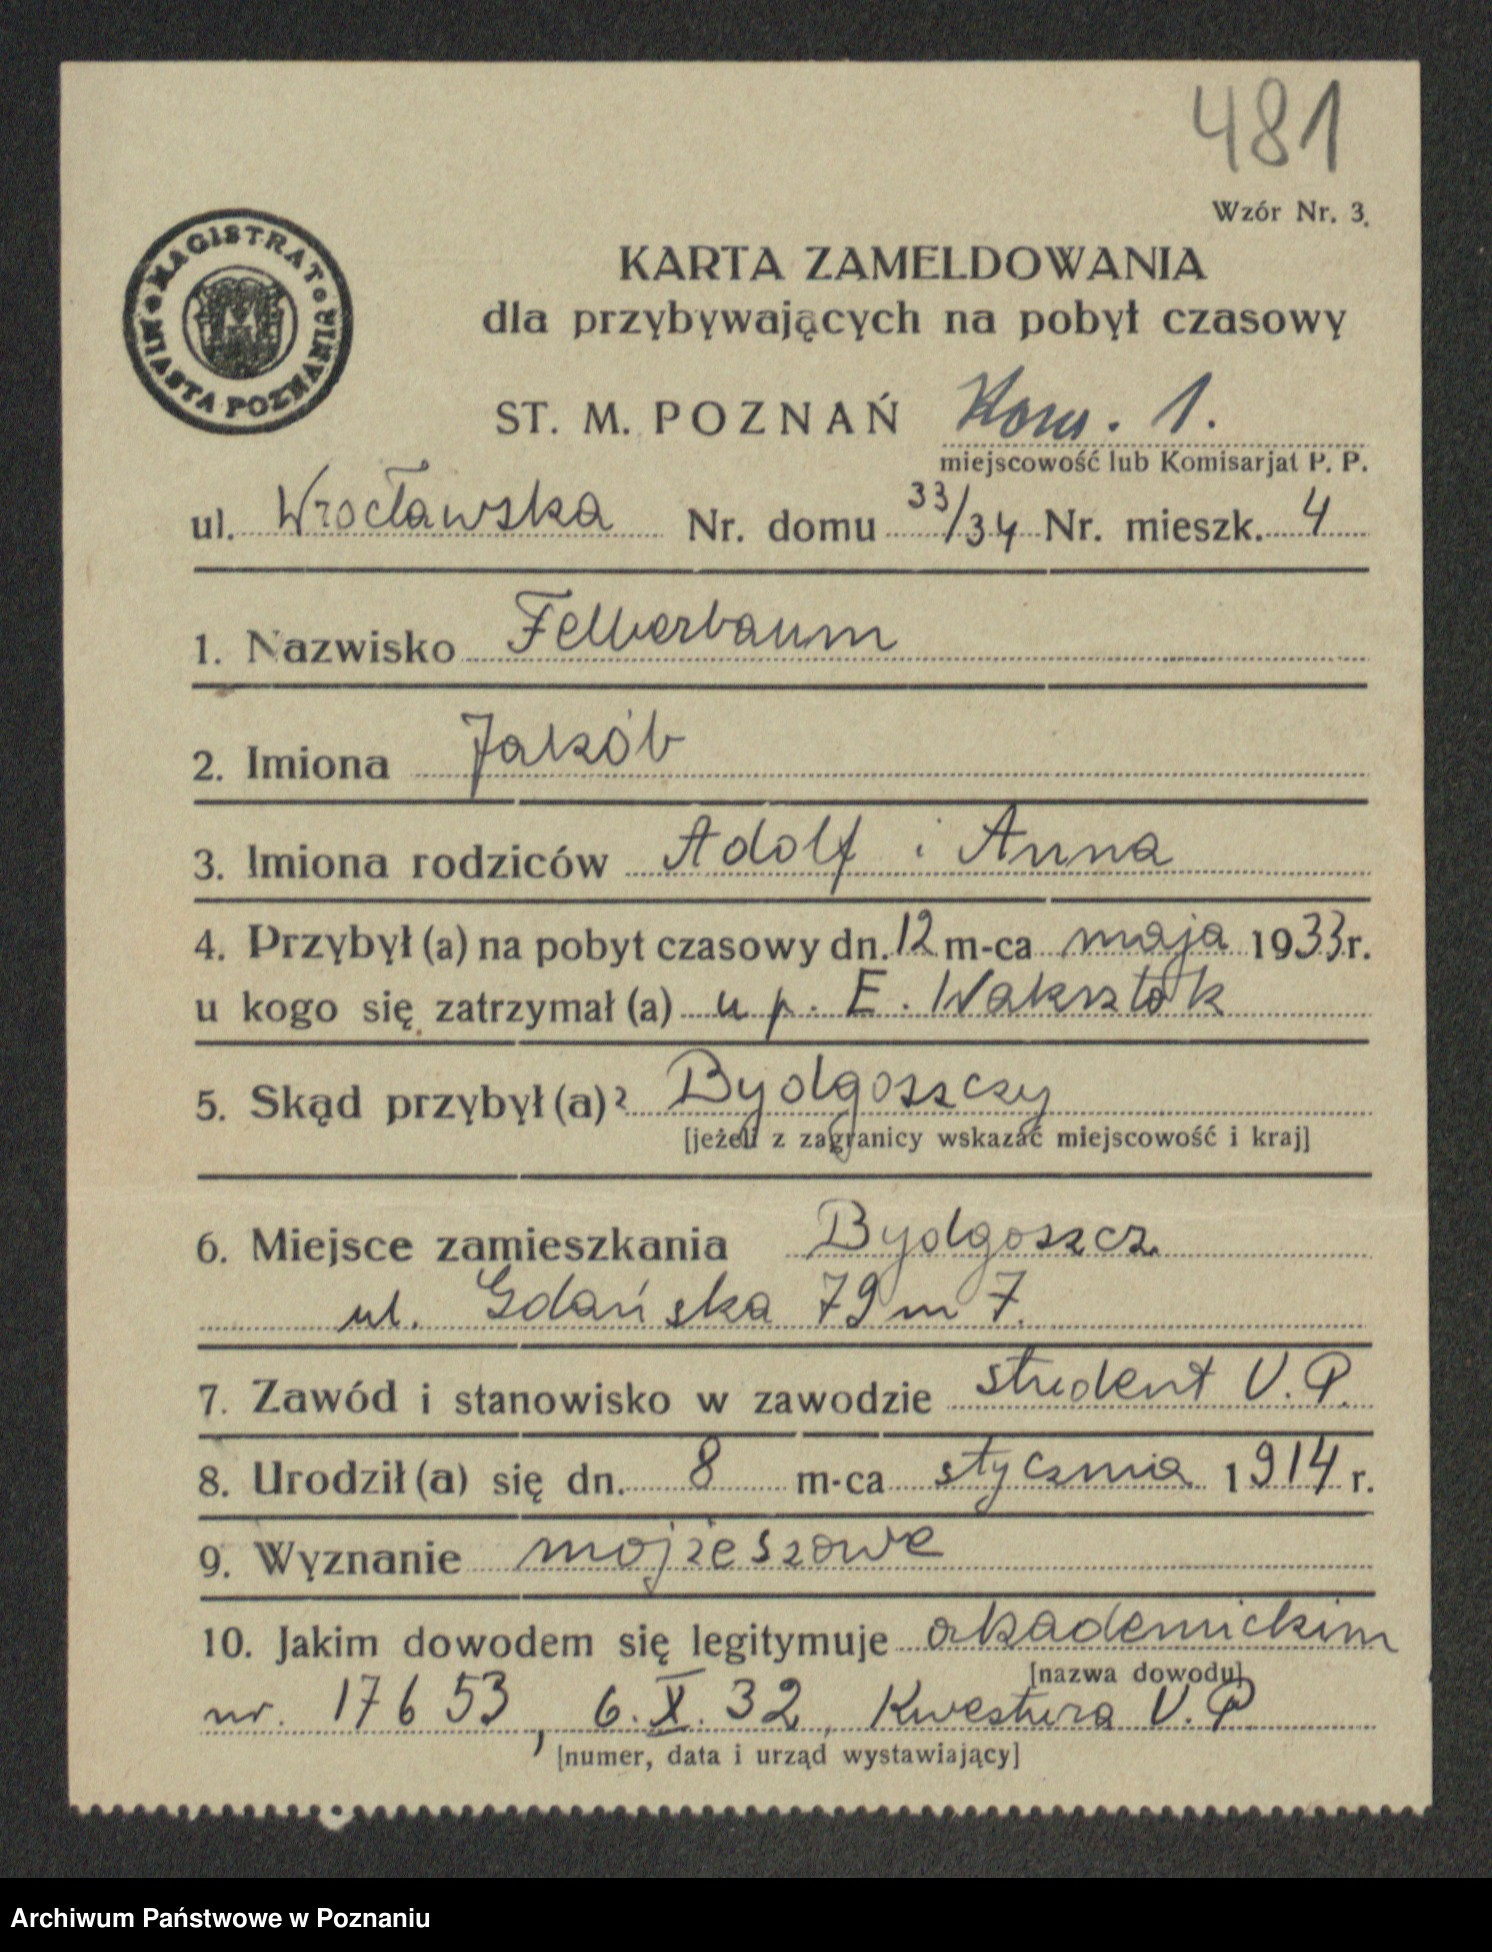 481
Wzór Nr. 3.
MAGISTRAT MIASTA POZNANIA
KARTA ZAMELDOWANIA
dla przybywających na pobyt czasowy
ST. M. POZNAŃ Kom. 1.
miejscowość lub Komisarjat P. P.
ul. Wrocławska Nr. domu 33/34 Nr. mieszk. 4
1. Nazwisko Felberbaum
2. Imiona Jakób
3. Imiona rodziców Adolf i Anna
4. Przybył (a) na pobyt czasowy dn. 12 m-ca maja 1933 r.
u kogo się zatrzymał (a) u p. E. Waksztok
5. Skąd przybył (a)? Bydgoszczy
[jeżeli z zagranicy wskazać miejscowość i kraj]
6. Miejsce zamieszkania Bydgoszcz
ul. Gdańska 79 m 7.
7. Zawód i stanowisko w zawodzie student U. P.
8. Urodził (a) się dn. 8 m-ca stycznia 1914 r.
9. Wyznanie mojżeszowe
10. Jakim dowodem się legitymuje akademickim
[nazwa dowodu]
nr. 17653, 6. X. 32, Kwestura U. P
[numer, data i urząd wystawiający]
Archiwum Państwowe w Poznaniu